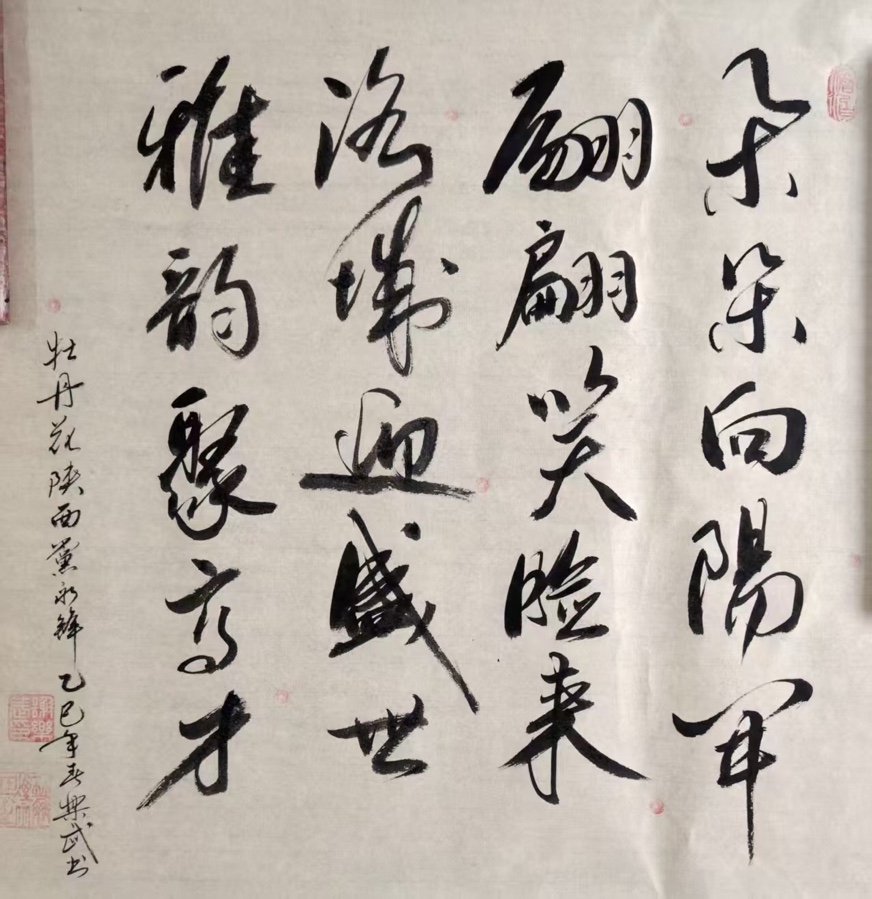 朵朵向陽開
翩翩笑臉来
洛城迎盛世
雅韵聚高才
牡丹花陕西党永鋒乙巳年春樂武书